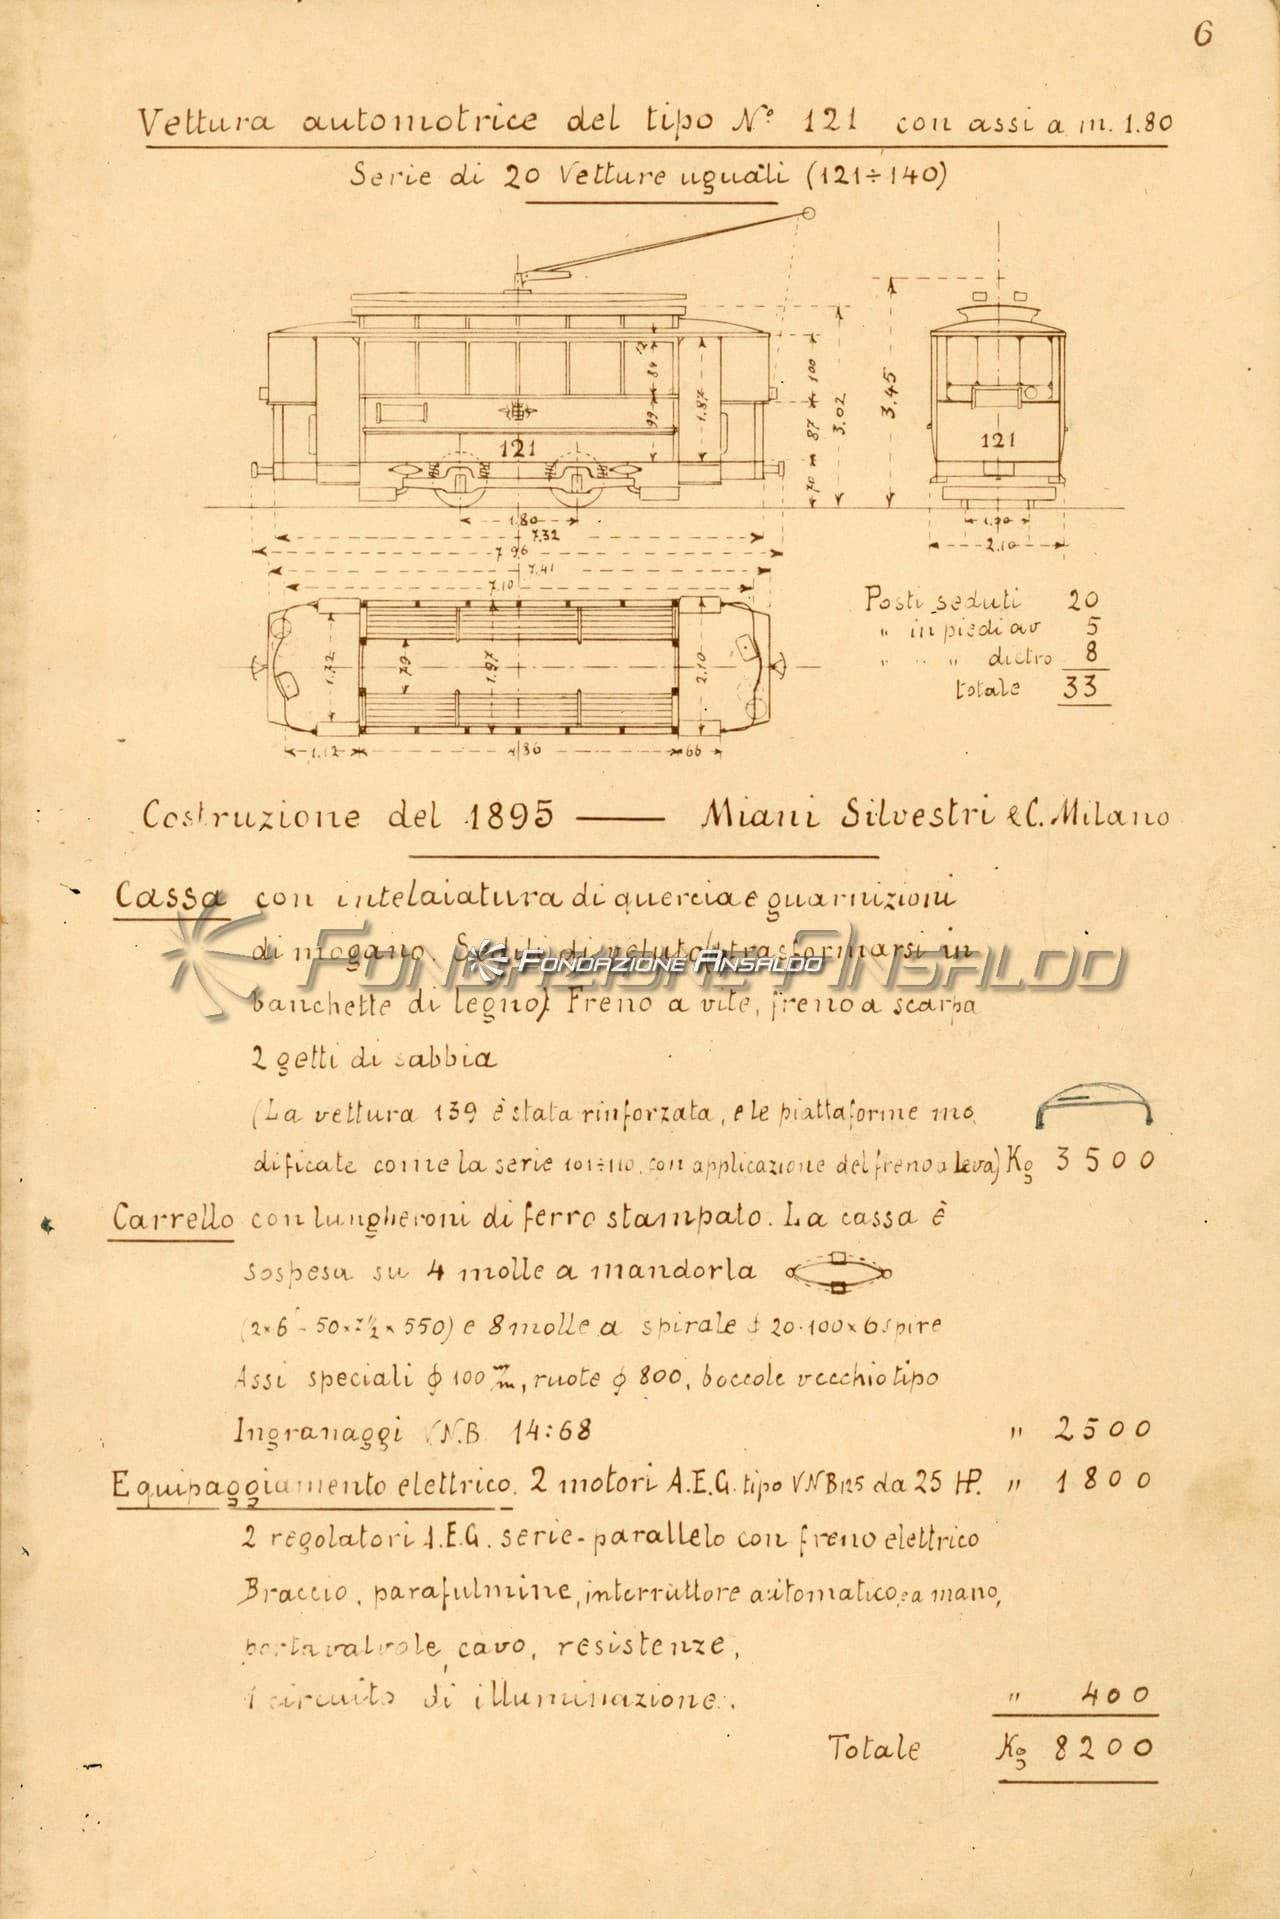 6
Vettura automotrice del tipo N.° 121 con assi a m. 1.80
Serie di 20 Vetture uguali (121÷140)
12
84
99
1.87
100
87
70
3.02
3.45
121
121
1.80
7.32
7.96
7.41
7.10
2.10
1.72
79
1.97
2.10
1.12
66
Posti seduti 20
" in piedi av 5
" " " dietro 8
totale 33
Costruzione del 1895 — Miani Silvestri & C. Milano
Cassa con intelaiatura di quercia e guarnizioni
di mogano. Sedili di veluto (trasformarsi in
Fondazione Ansaldo
Fondazione Ansaldo
banchette di legno). Freno a vite, freno a scarpa
2 getti di sabbia
(La vettura 139 è stata rinforzata, e le piattaforme mo.
dificate come la serie 101÷110, con applicazione del freno a leva) Kg 3500
Carrello con lungheroni di ferro stampato. La cassa è
sospesa su 4 molle a mandorla
(2×6 - 50×7½×550) e 8 molle a spirale 20.100×6 spire
Assi speciali ϕ 100 m/m, ruote ϕ 800, boccole vecchio tipo
Ingranaggi V.N.B 14:68 " 2500
Equipaggiamento elettrico. 2 motori A.E.G. tipo VNB125 da 25 HP. " 1800
2 regolatori A.E.G. serie-parallelo con freno elettrico
Braccio, parafulmine, interruttore automatico, e a mano,
portavalvole, cavo, resistenze,
1 circuito di illuminazione. " 400
Totale Kg 8200